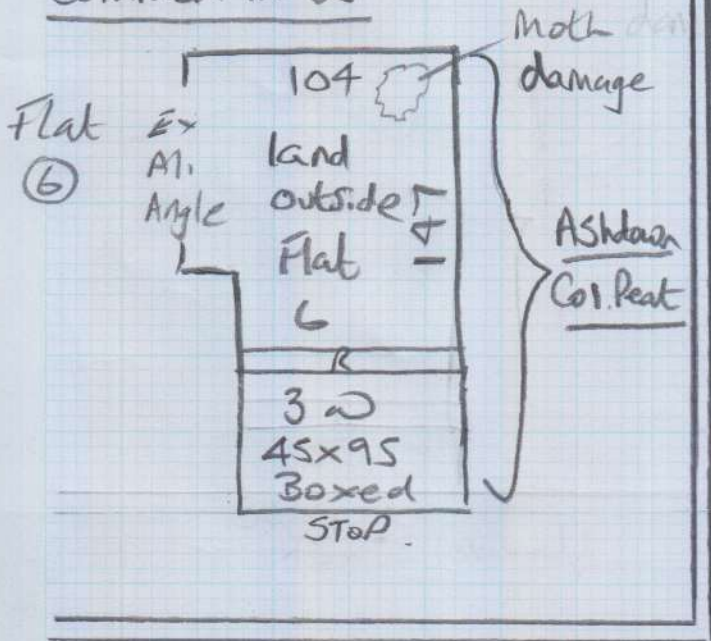 Moth
damage
104
Flat
6
Ex
Al.
Angle
land
outside
Flat
6
141
Ashdown
Col. Peat
R
3 @
45x95
Boxed
STOP.